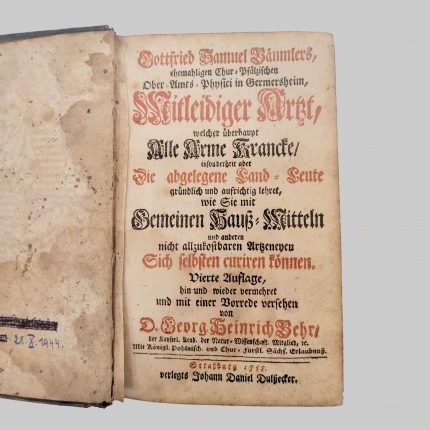 Gottfried Samuel Bäumlers,
ehemahligen Chur-Pfältzischen
Ober-Amts-Physici in Germersheim,
Mitleidiger Artzt,
welcher überhaupt
Alle Arme Krancke/
insonderheit aber
Die abgelegene Land-Leute
gründlich und aufrichtig lehret,
wie Sie mit
Gemeinen Hauß-Mitteln
und anderen
nicht allzukostbaren Artzeneyen
Sich selbsten curiren können.
Vierte Auflage,
hin und wieder vermehret
und mit einer Vorrede versehen
von
D. Georg Heinrich Behr/
der Kayserl. Acad. der Natur-Wissenschaft. Mitglied, ꝛc.
Mit Königl. Pohlnisch. und Chur-Fürstl. Sächs. Erlaubnuß.
Straßburg
verlegts Johann Daniel Dulßecker.
1944.